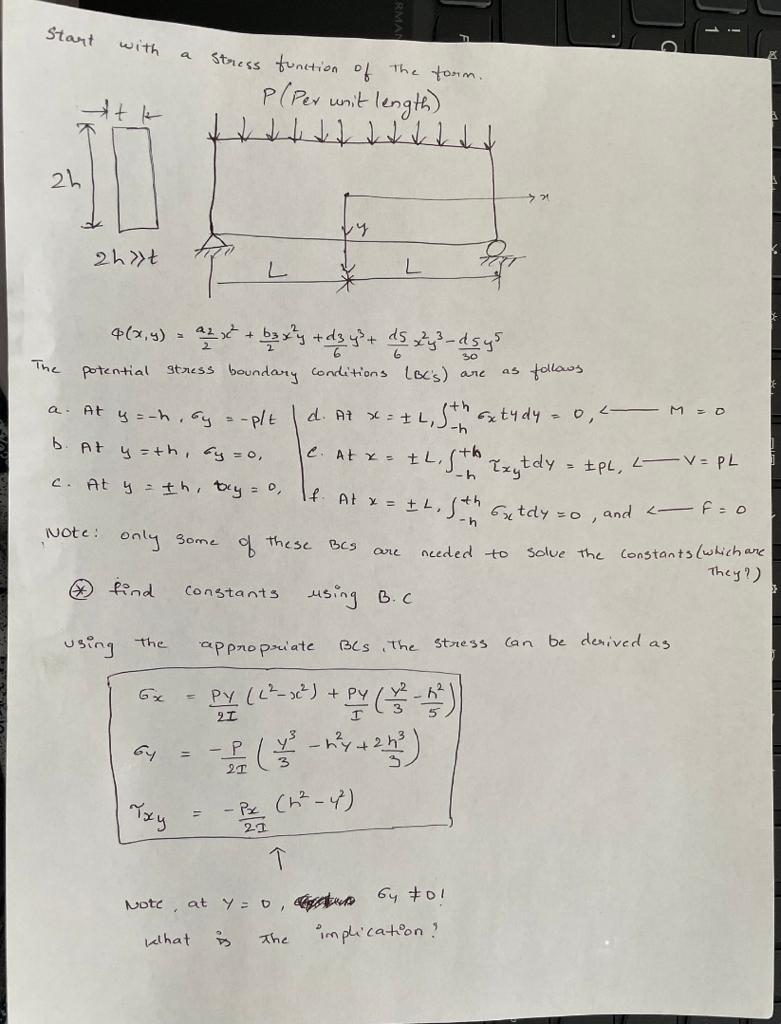 Start with a stress function of the form.
P (Per unit length)
t
2h
x
y
2h>>t
L L
Φ(x,y) = a2/2 x² + b3/2 x²y + d3/6 y³ + d5/6 x²y³ - d5/30 y⁵
The potential stress boundary conditions (BC's) are as follows
a. At y=-h, σy = -p/t
b. At y=+h, σy=0,
c. At y = ±h, τxy = 0,
d. At x = ±L, ∫-h+h σx t y dy = 0, ← M = 0
e. At x = ±L, ∫-h+h τxy t dy = ±pL, ← V = pL
f. At x = ±L, ∫-h+h σx t dy = 0, and ← F = 0
Note: only some of these BCs are needed to solve the constants (which are
They?)
* find constants using B.C
using the appropriate BCs, The stress can be derived as
σx = Py/2I (L²-x²) + Py/I (y²/3 - h²/5)
σy = -P/2I (y³/3 - h²y + 2h³/3)
τxy = -Px/2I (h²-y²)
Note, at y = 0, σy ≠ 0!
What is the implication?